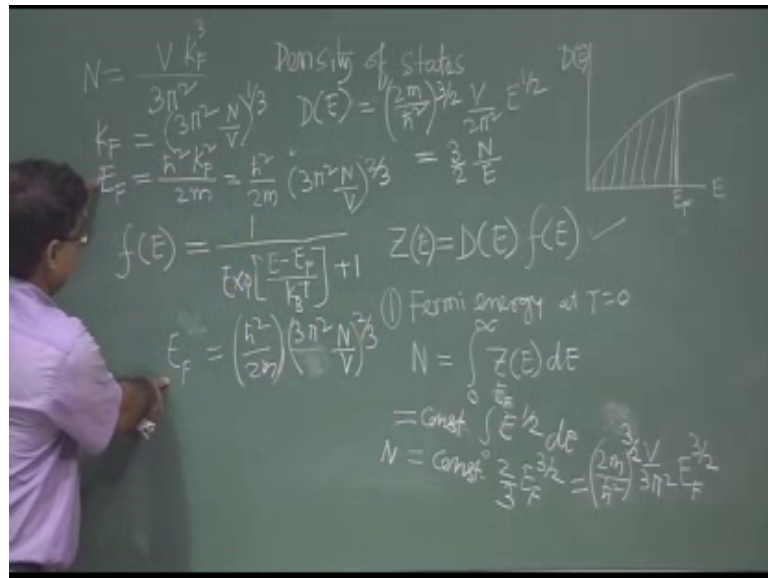 N = V k_F^3 / 3π^2
Density of states
k_F = (3π^2 N/V)^1/3
D(E) = (2m/ħ^2)^3/2 V/2π^2 E^1/2
E_F = ħ^2 k_F^2 / 2m = ħ^2/2m (3π^2 N/V)^2/3
= 3/2 N/E
D(E)
E_F E
f(E) = 1 / Exp[E-E_F / k_B T] + 1
Z(E) = D(E) f(E) ✓
① Fermi energy at T=0
E_F = (ħ^2/2m) (3π^2 N/V)^2/3
N = ∫_0^∞ Z(E) dE
= Const. ∫_0^E_F E^1/2 dE
N = Const. 2/3 E_F^3/2 = (2m/ħ^2)^3/2 V/3π^2 E_F^3/2